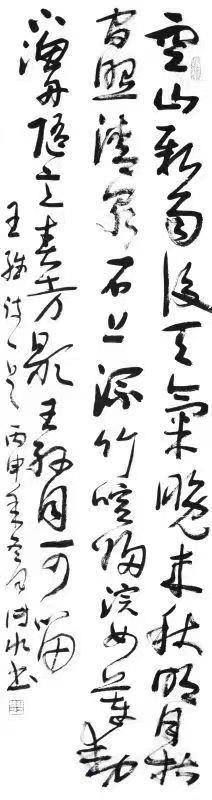 空山新雨後天氣晚来秋明月松
間照清泉石上流竹喧歸浣女蓮動
下漁舟隨意春芳歇王孫自可留
王維詩一首丙申年冬月书